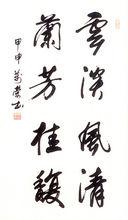 雲淡風清
蘭芳桂馥
甲申